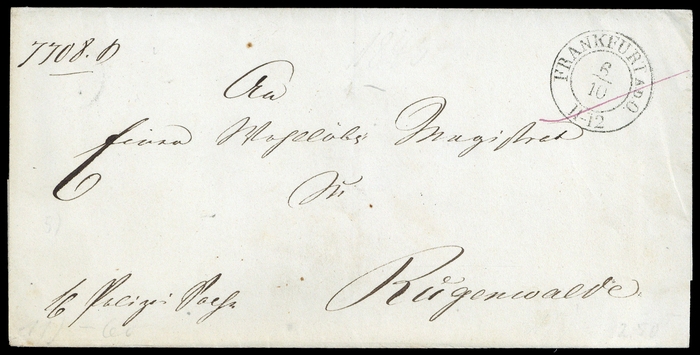 7708. D
FRANKFURT A.D.O.
6
10
11-12
An
Einen Wohllöbl. Magistrat
zu
Rügenwalde
Polizei Sache
2.50